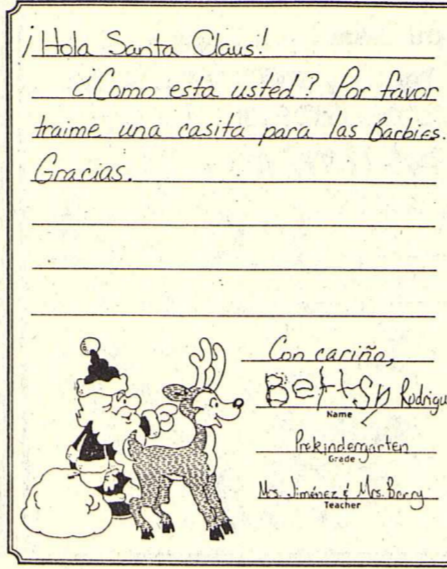 ¡Hola Santa Claus!
¿Como esta usted? Por favor
traime una casita para las Barbies.
Gracias.
Con cariño,
Bettsy Rodrigu
Name
Prekindergarten
Grade
Mrs. Jiménez & Mrs. Barry
Teacher